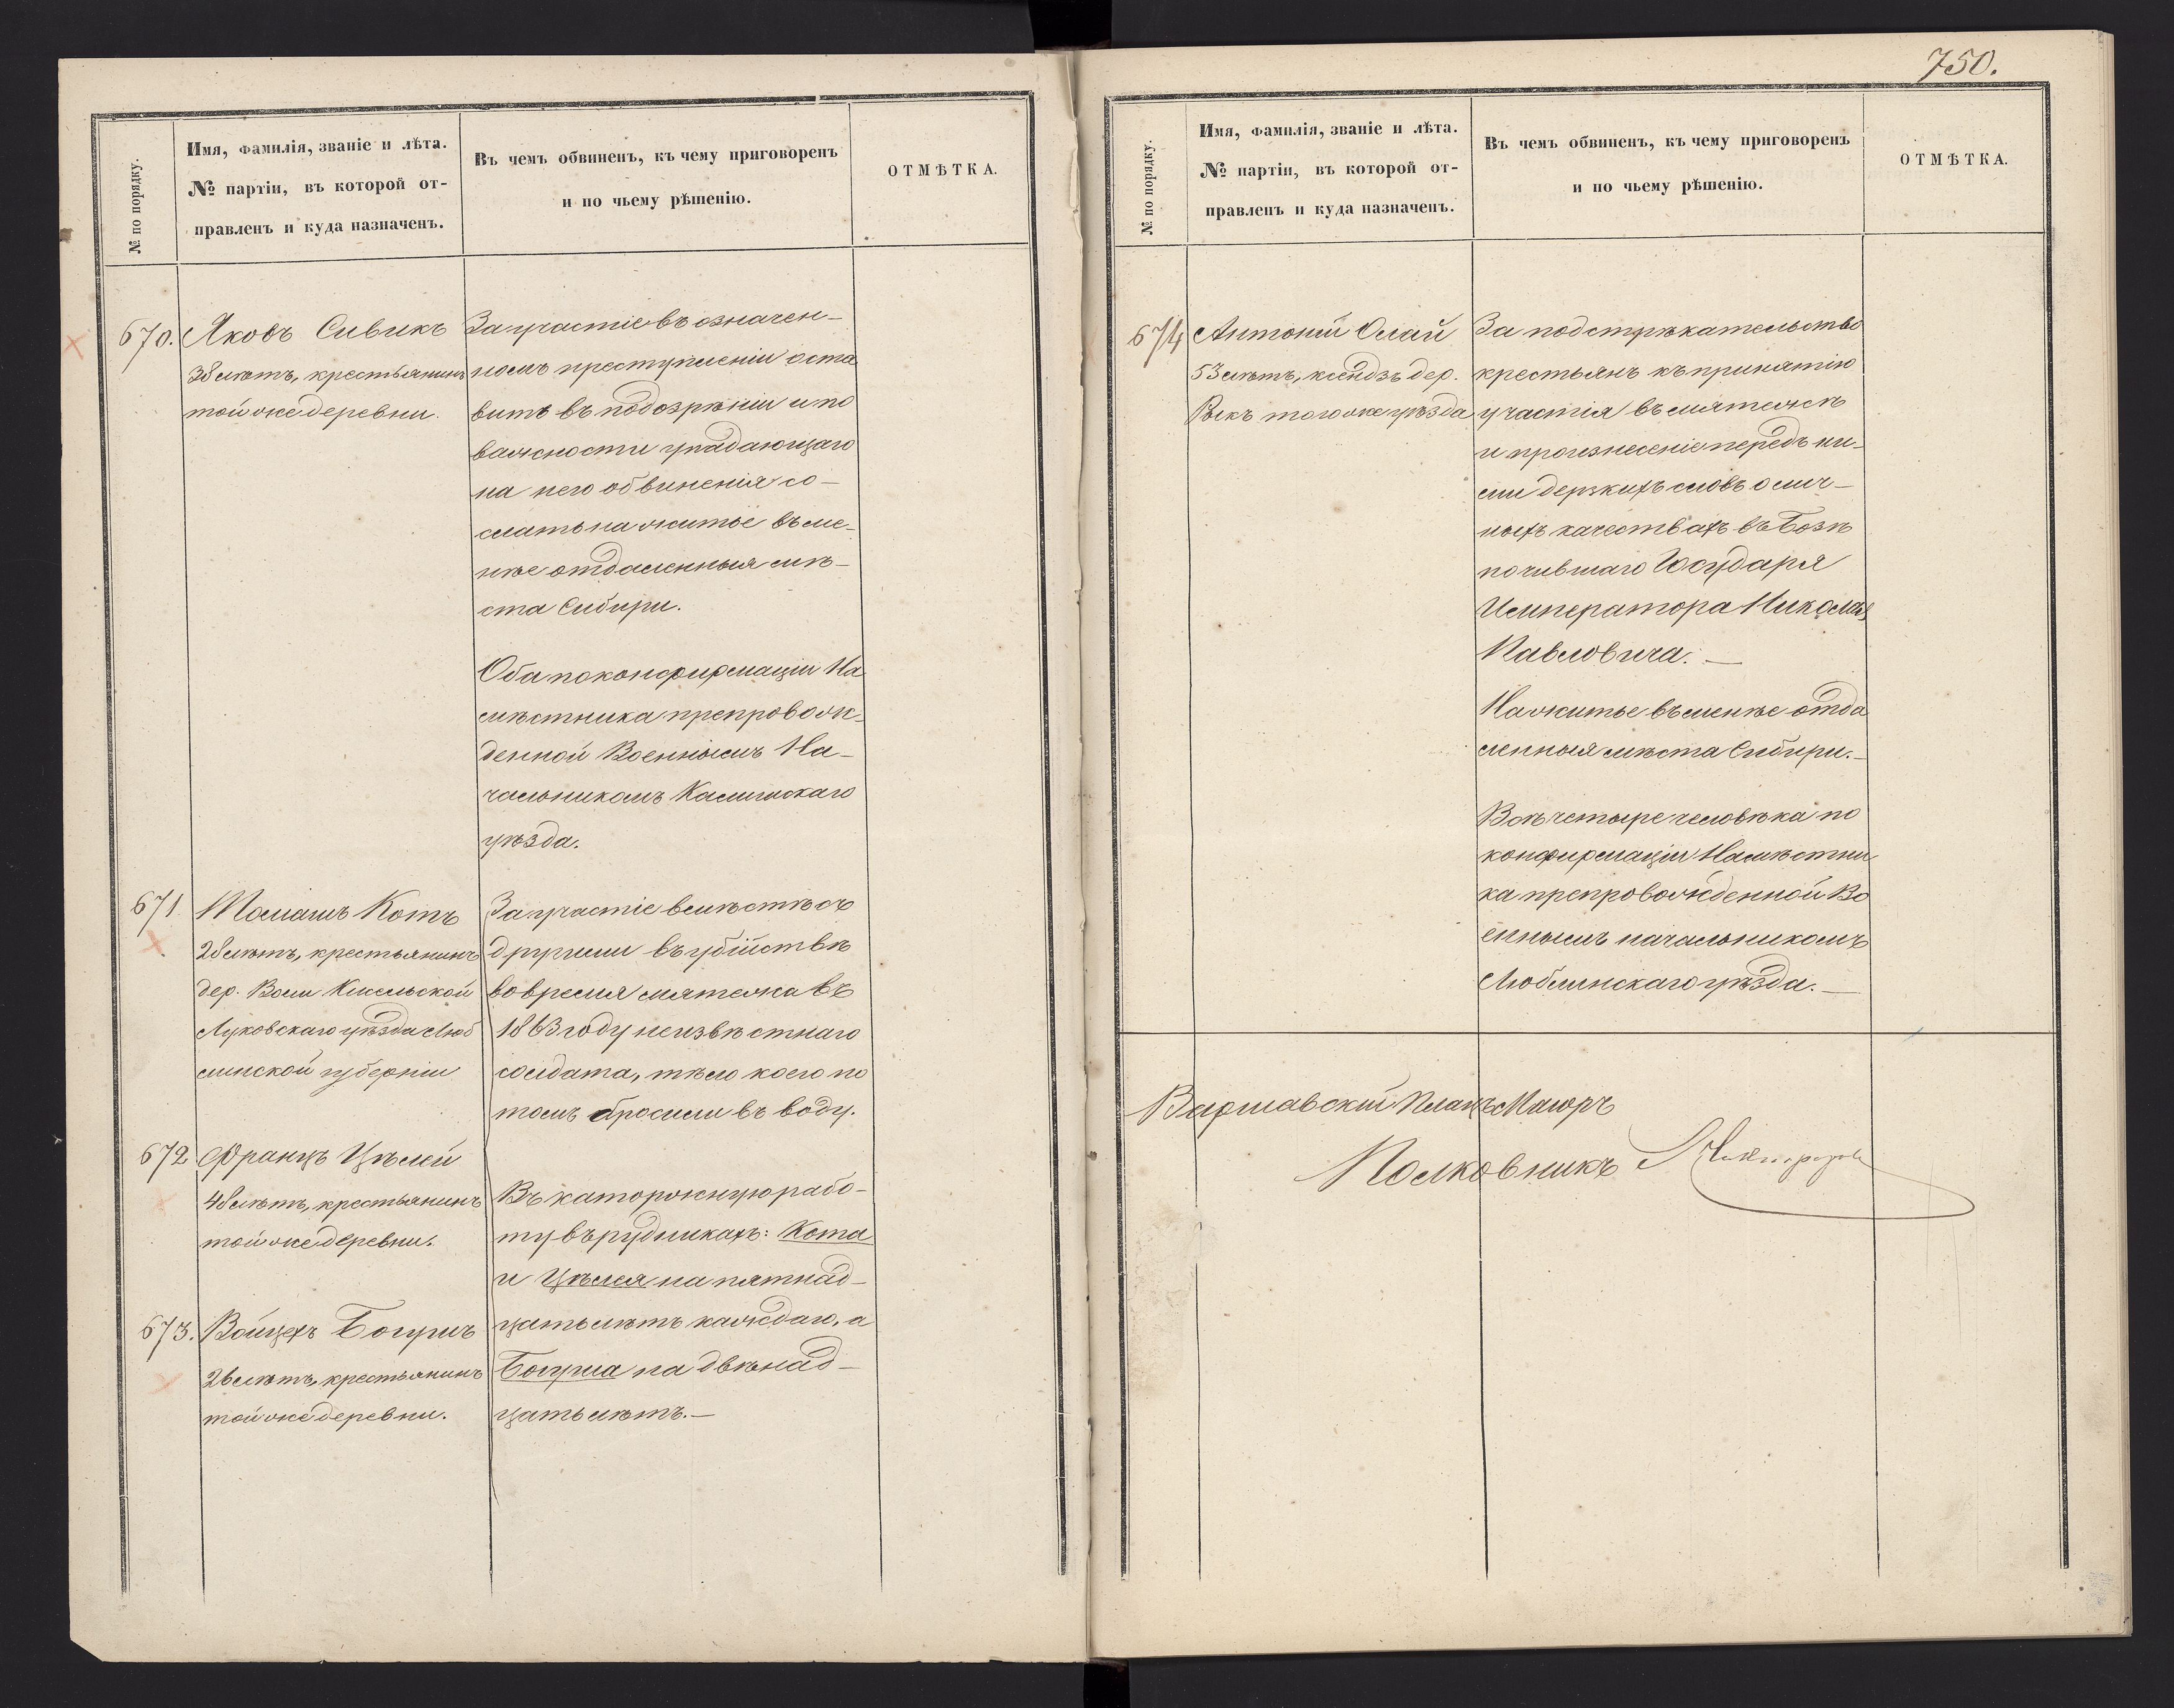 № по порядку.
Имя, фамилія, званіе и лѣта.
№ партіи, въ которой от-
правленъ и куда назначенъ.
Въ чемъ обвиненъ, къ чему приговоренъ
и по чьему рѣшенію.
ОТМѢТКА.
670. Яковъ Сивикъ
38 лѣтъ, крестьянинъ
той же деревни.
За участіе въ означен-
номъ преступленіи оста
вить въ подозрѣніи и по
важности упадающаго
на него обвиненія со-
слать на житье въ ме-
нѣе отдаленныя мѣ-
ста Сибири.
Оба по конфирмаціи На
мѣстника препровож-
денной Военнымъ На-
чальникомъ Калишскаго
уѣзда.
671 Томашъ Котъ
28 лѣтъ, крестьянинъ
дер. Воли Кисельской
Луковскаго уѣзда Люб
линской губерніи
672. Францъ Цѣлей
48 лѣтъ, крестьянинъ
той же деревни.
673. Войцехъ Богушъ
26 лѣтъ, крестьянинъ
той же деревни.
За участіе вмѣстѣ съ
другими въ убійствѣ
во время мятежа въ
1863 году неизвѣстнаго
солдата, тѣло коего по
томъ бросили въ воду.
Въ каторжную рабо-
ту въ рудникахъ: Кота
и Цѣлея на пятнад-
цать лѣтъ каждаго, а
Богуша на двѣнад-
цать лѣтъ.—
750.
№ по порядку.
Имя, фамилія, званіе и лѣта.
№ партіи, въ которой от-
правленъ и куда назначенъ.
Въ чемъ обвиненъ, къ чему приговоренъ
и по чьему рѣшенію.
ОТМѢТКА.
674 Антоній
53 лѣтъ, ксендзъ дер.
того же уѣзда
За подстрѣкательство
крестьянъ къ принятію
участія въ мятежѣ
и произнесеніе передъ ни-
ми дерзкихъ словъ о лич-
ныхъ качествахъ въ Бозѣ
почившаго Государя
Императора Николая
Павловича.—
На житье въ менѣе отда
ленныя мѣста Сибири.—
Всѣ четыре человѣка по
конфирмаціи Намѣстни
ка препровожденной Во
еннымъ начальникомъ
Люблинскаго уѣзда.—
Варшавскій Плацъ Маіоръ
Полковникъ